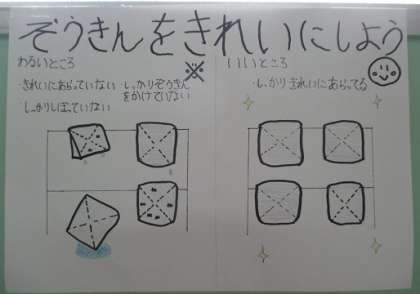 ぞうきんをきれいにしよう
わるいところ
・きれいにあらっていない
・しっかりしぼっていない
・しっかりぞうきん
をかけていない
いいところ
・しっかりきれいにあらってる